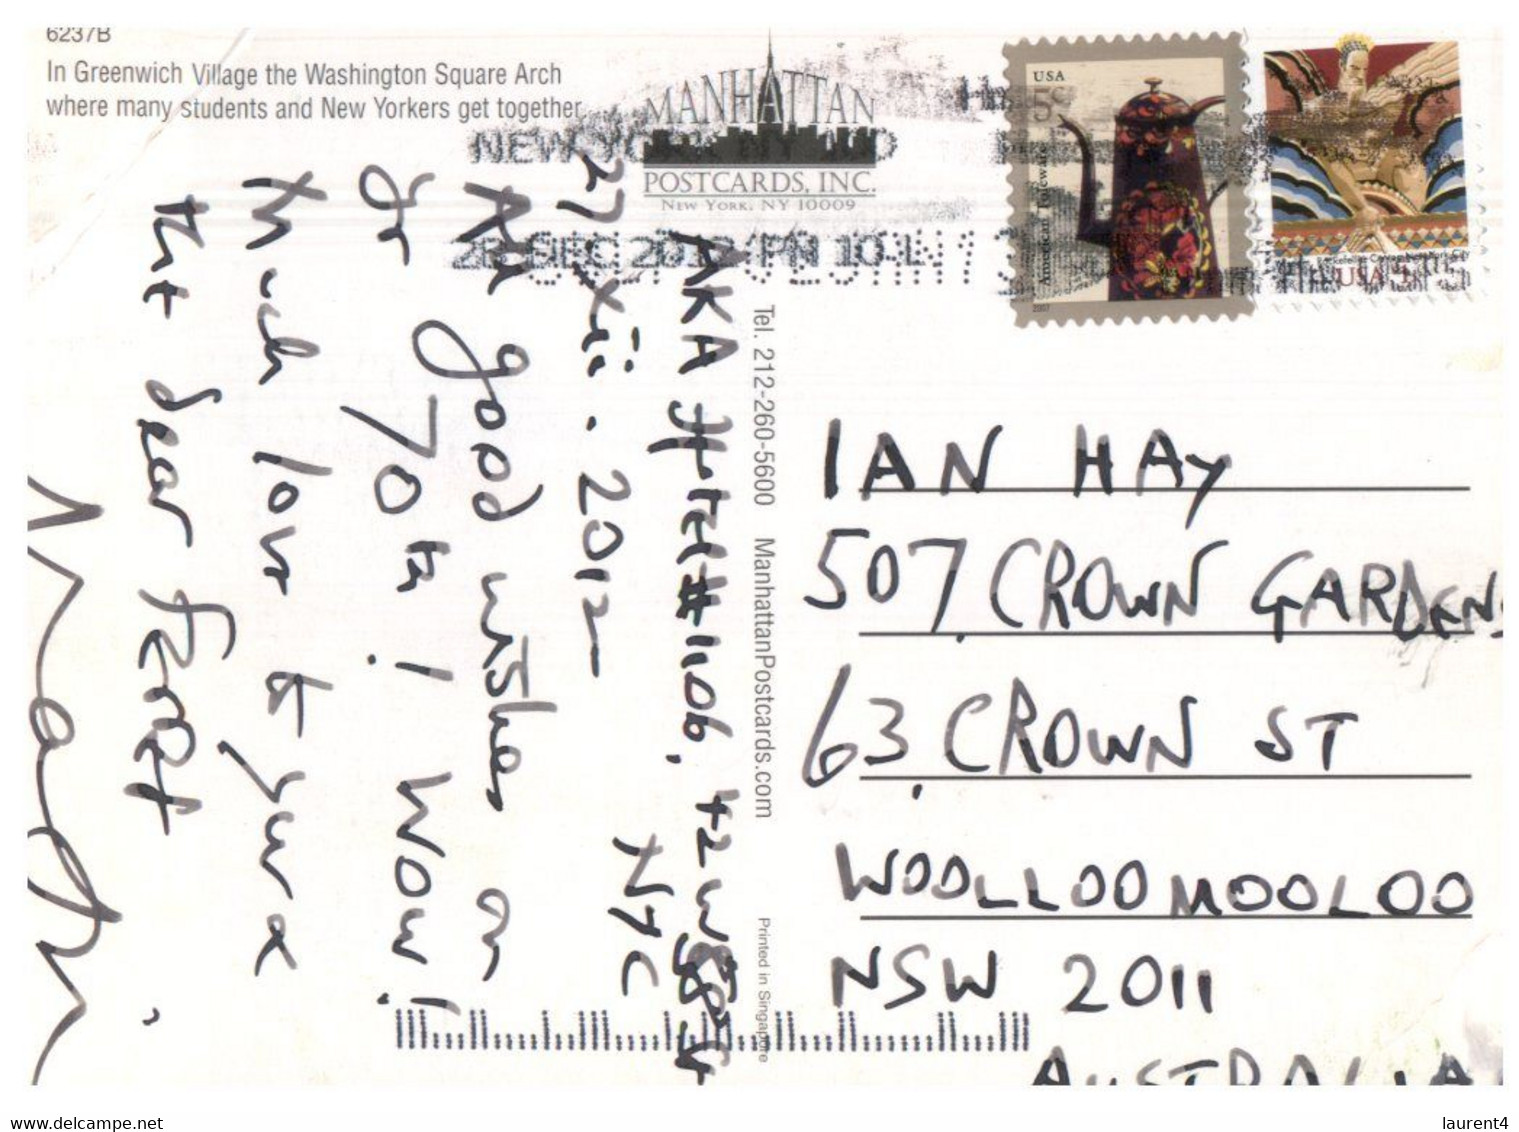 6237B
In Greenwich Village the Washington Square Arch
where many students and New Yorkers get together.
MANHATTAN
POSTCARDS, INC.
NEW YORK, NY 10009
NEW YORK NY
28 DEC 2012 PM 10 L
USA
5c
2007
USA
Tel. 212-260-5600 ManhattanPostcards.com
Printed in Singapore
AKA Hotel #1106, 42 W 58 St
NYC
27.xii.2012
All good wishes on
Yr 70th! Wow!
Much love to you x
the dear
IAN HAY
507, CROWN GARDENS
63, CROWN ST
WOOLLOOMOOLOO
NSW 2011
AUSTRALIA
www.delcampe.net
laurent4